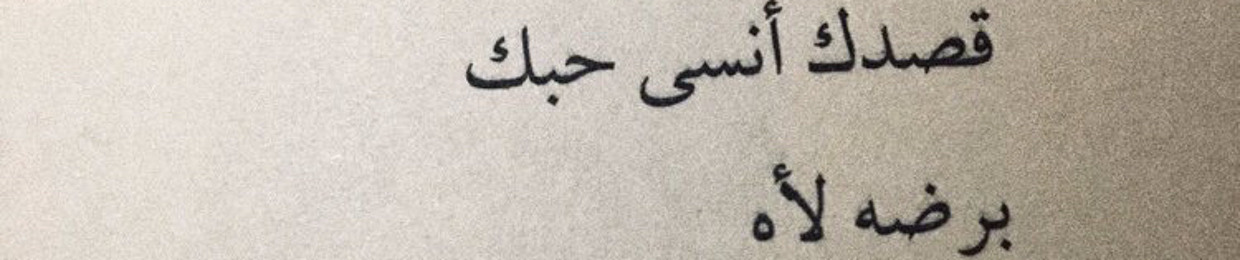 قصدك أنسى حبك
برضه لأه